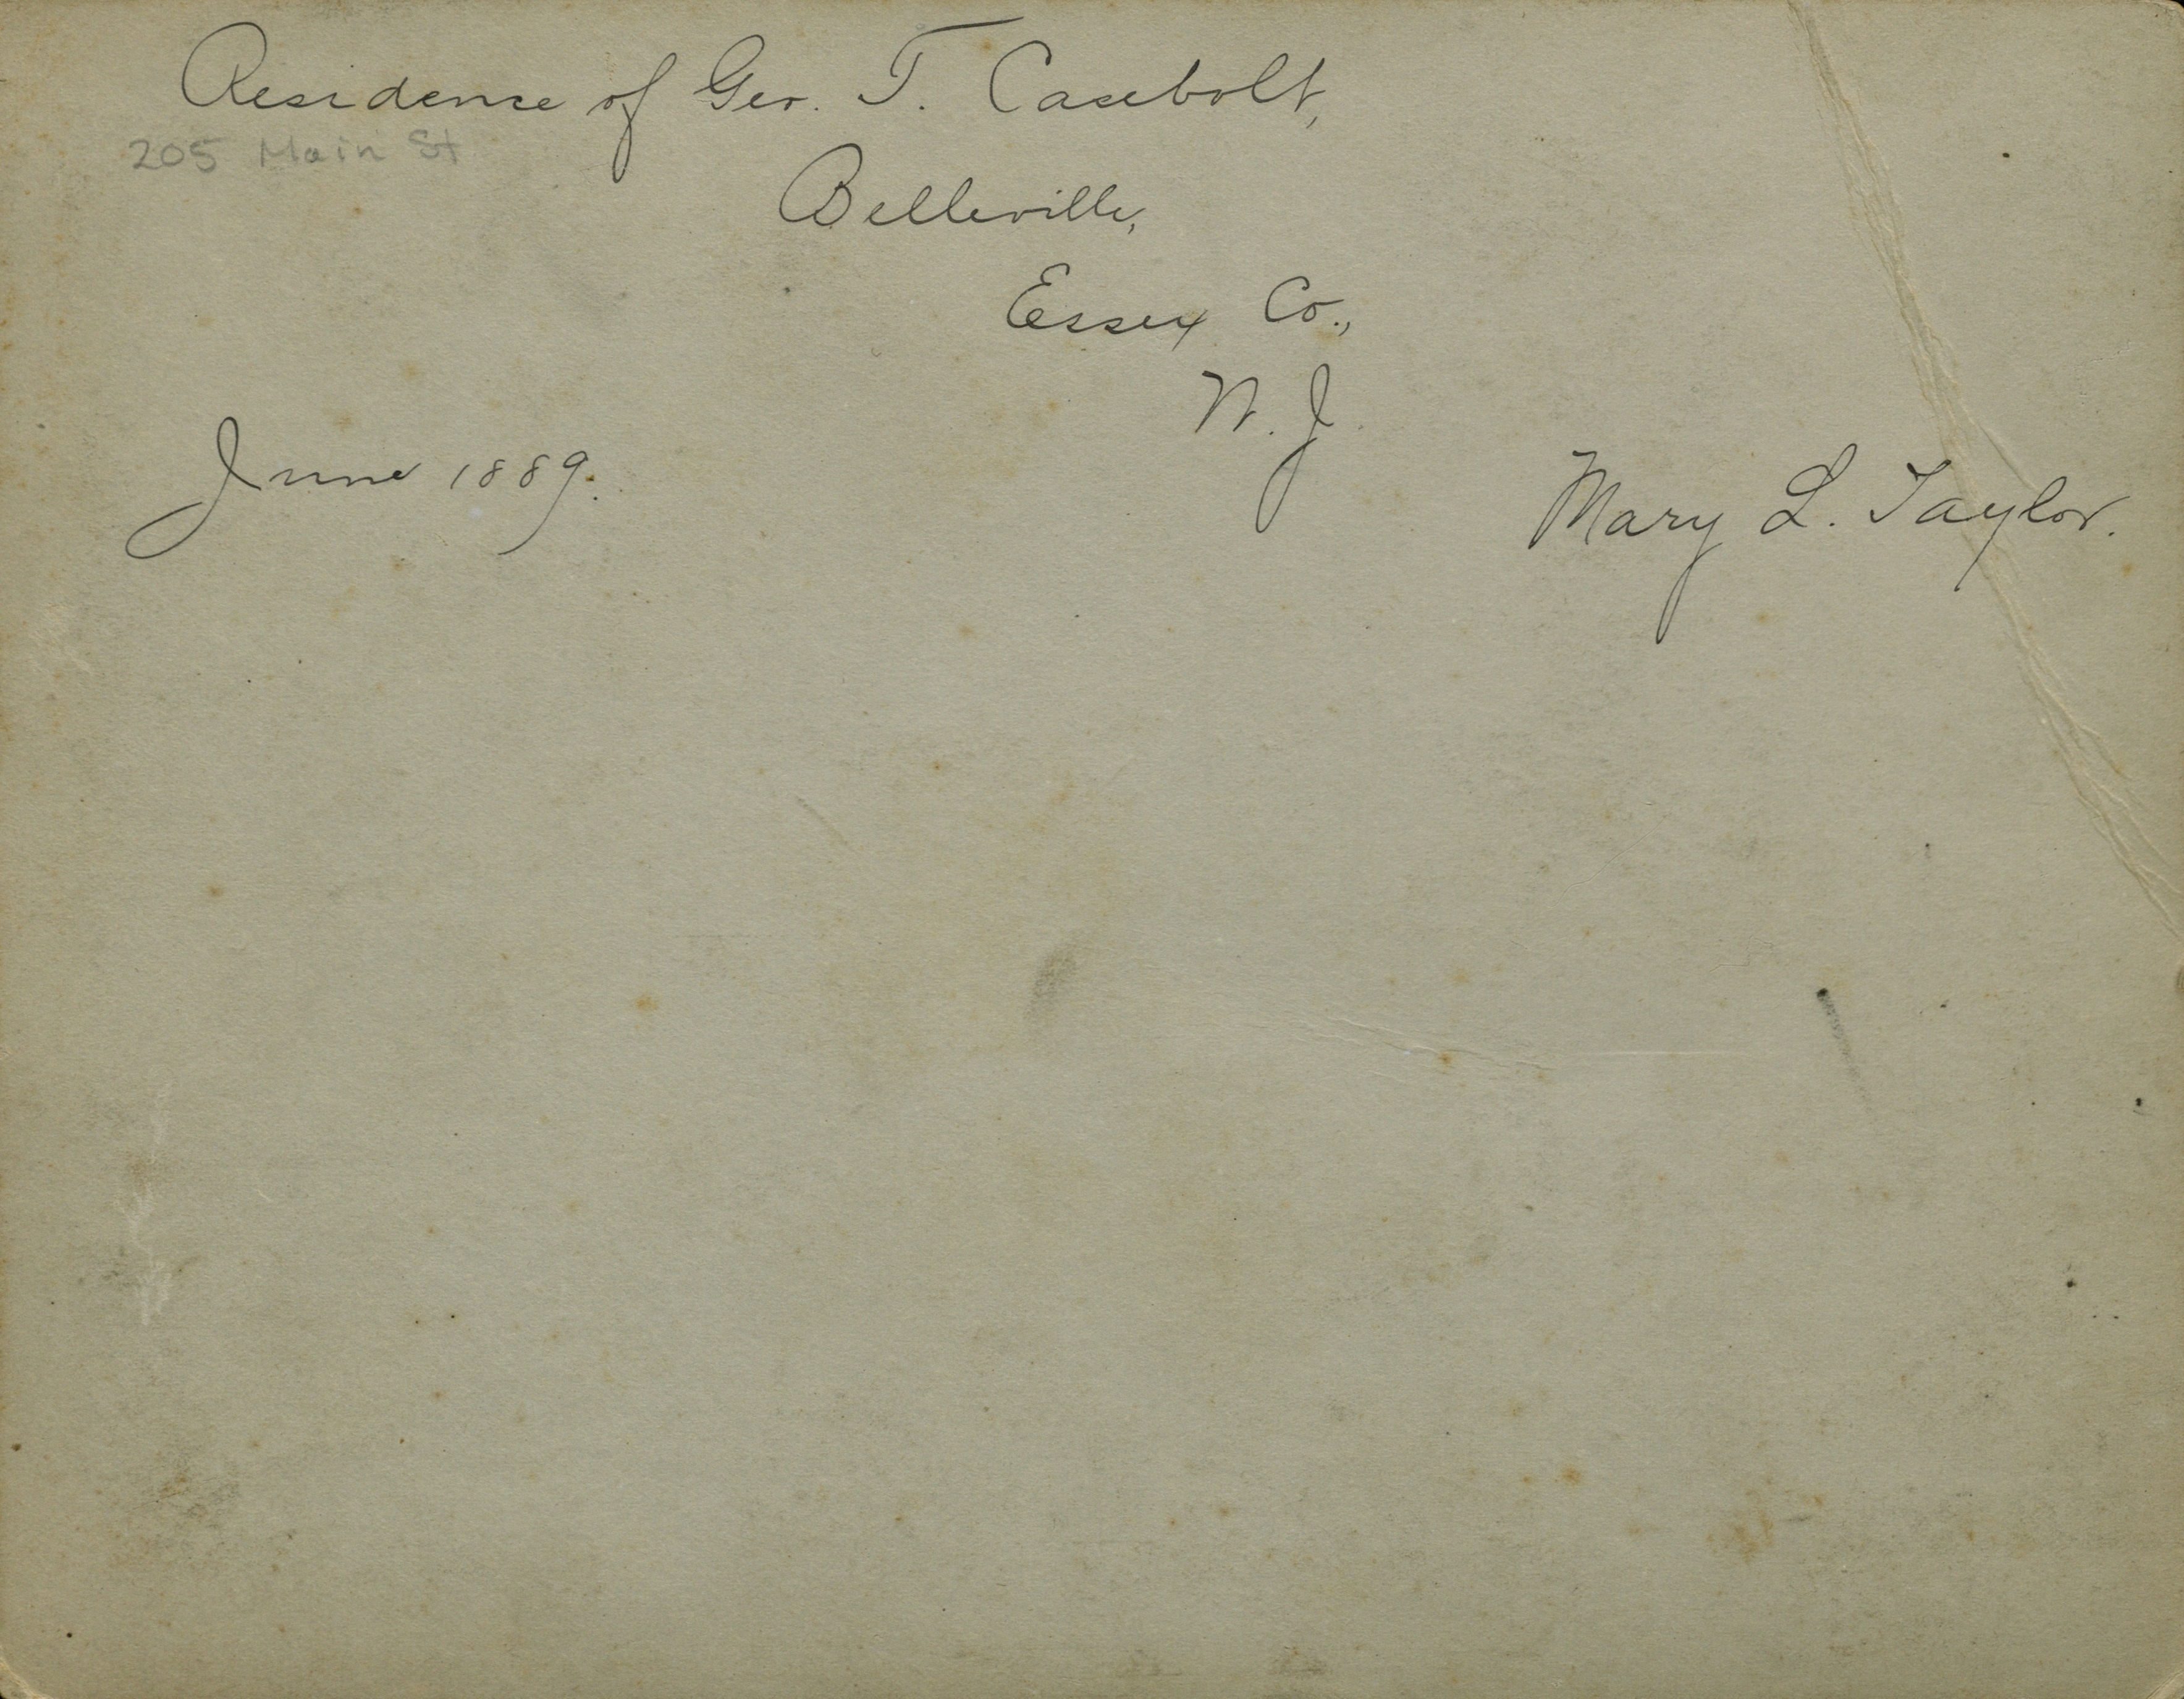 Residence of Geo. T. Casebolt,
205 Main St
Belleville,
Essex Co.,
N. J.
June 1889.
Mary L. Taylor.